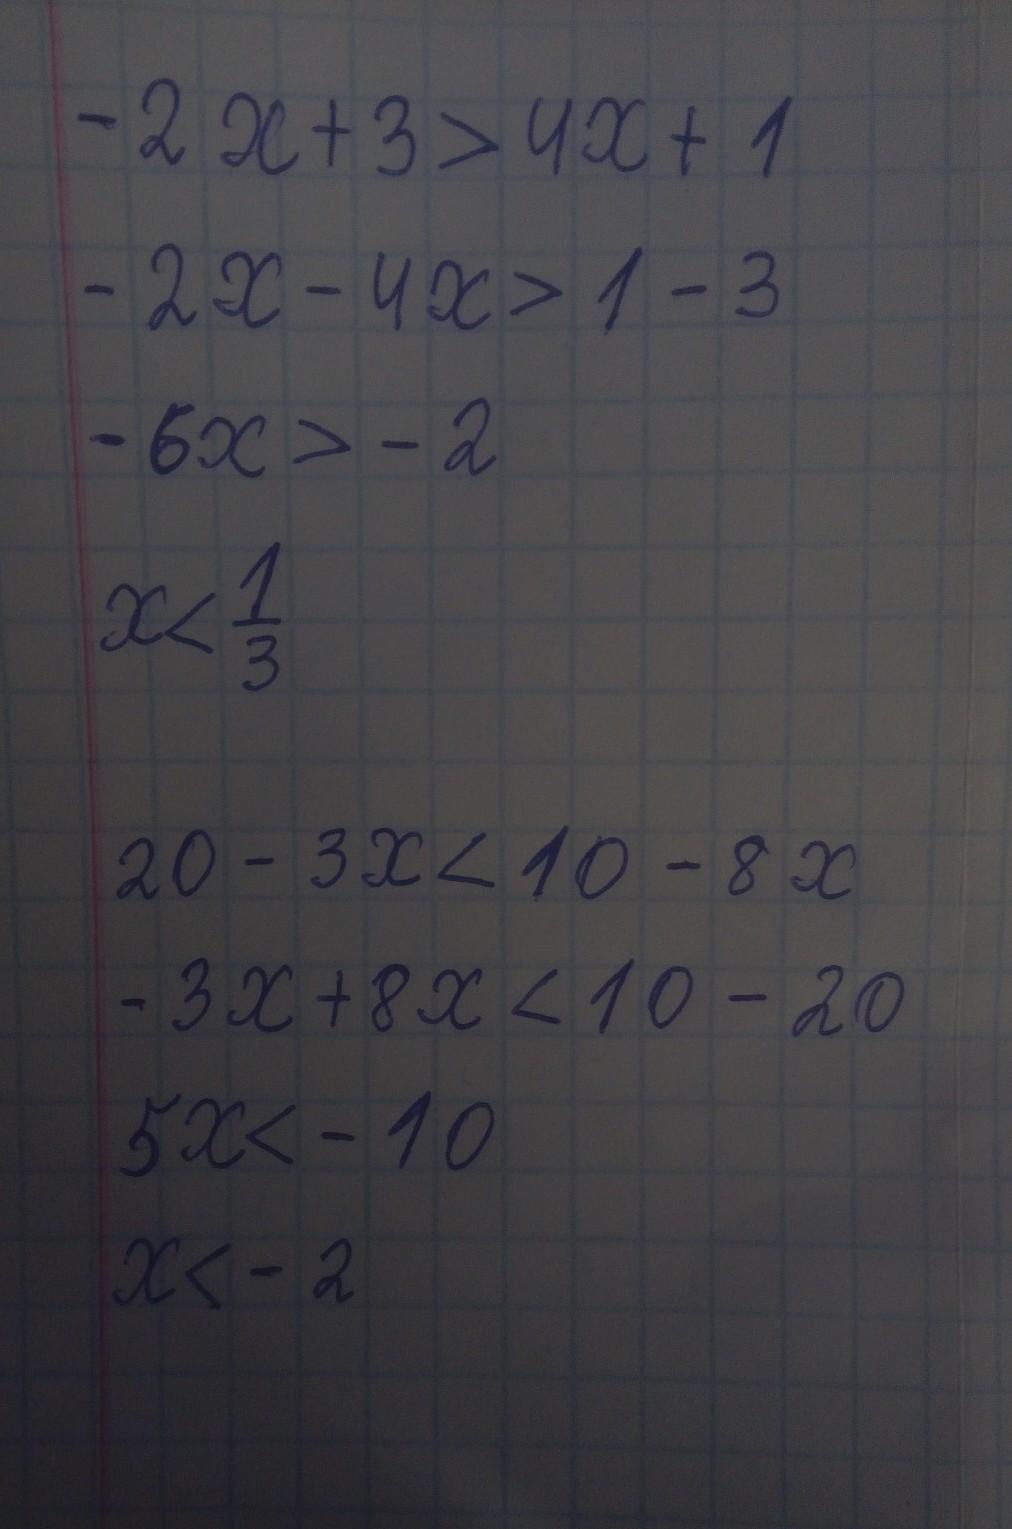 -2x+3>4x+1
-2x-4x>1-3
-6x>-2
x<1/3
20-3x<10-8x
-3x+8x<10-20
5x<-10
x<-2